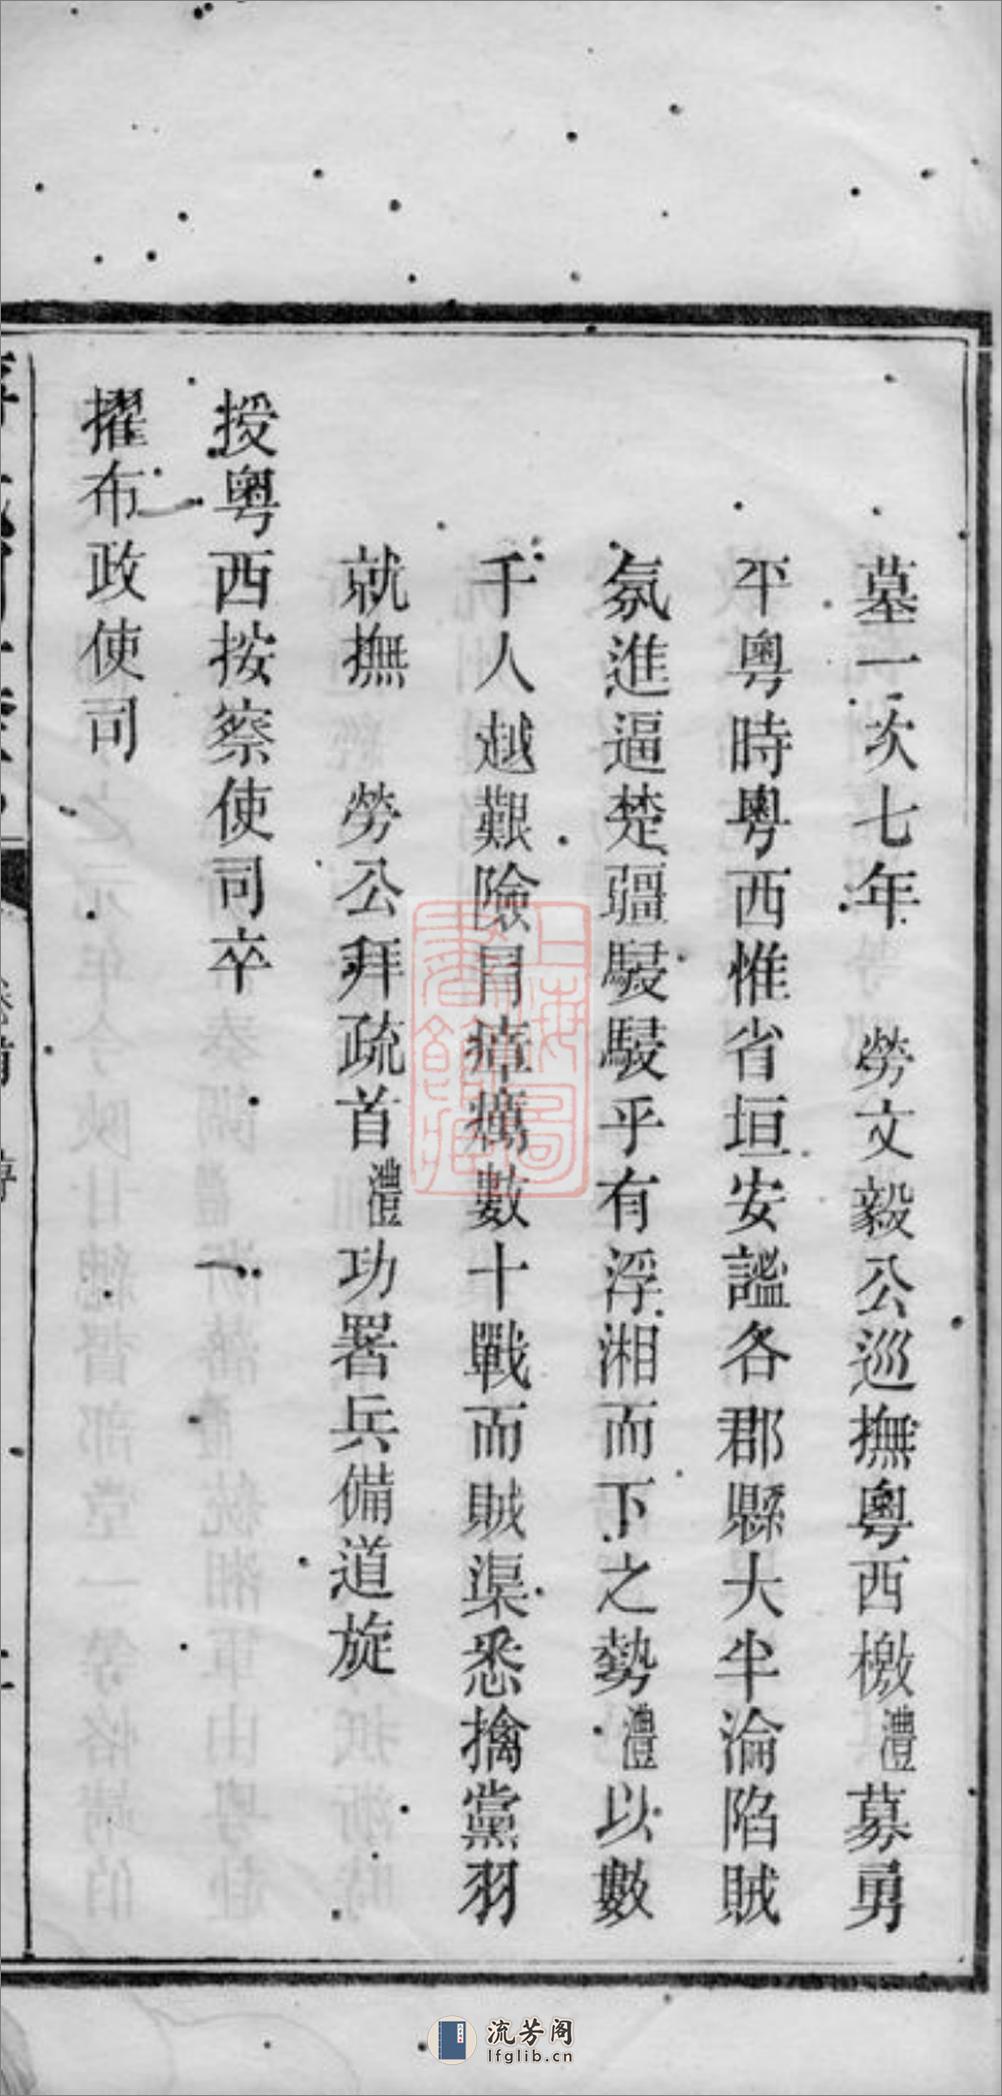 墓一次七年　勞文毅公巡撫粵西檄澧募勇
平粵時粵西惟省垣安謐各郡縣大半淪陷賊
氛進逼楚疆駸駸乎有浮湘而下之勢澧以數
千人越艱險冒瘴癘數十戰而賊渠悉擒黨羽
就撫　勞公拜疏首澧功署兵備道旋
授粵西按察使司卒
擢布政使司
上海圖書館藏
流芳阁
lfglib.cn